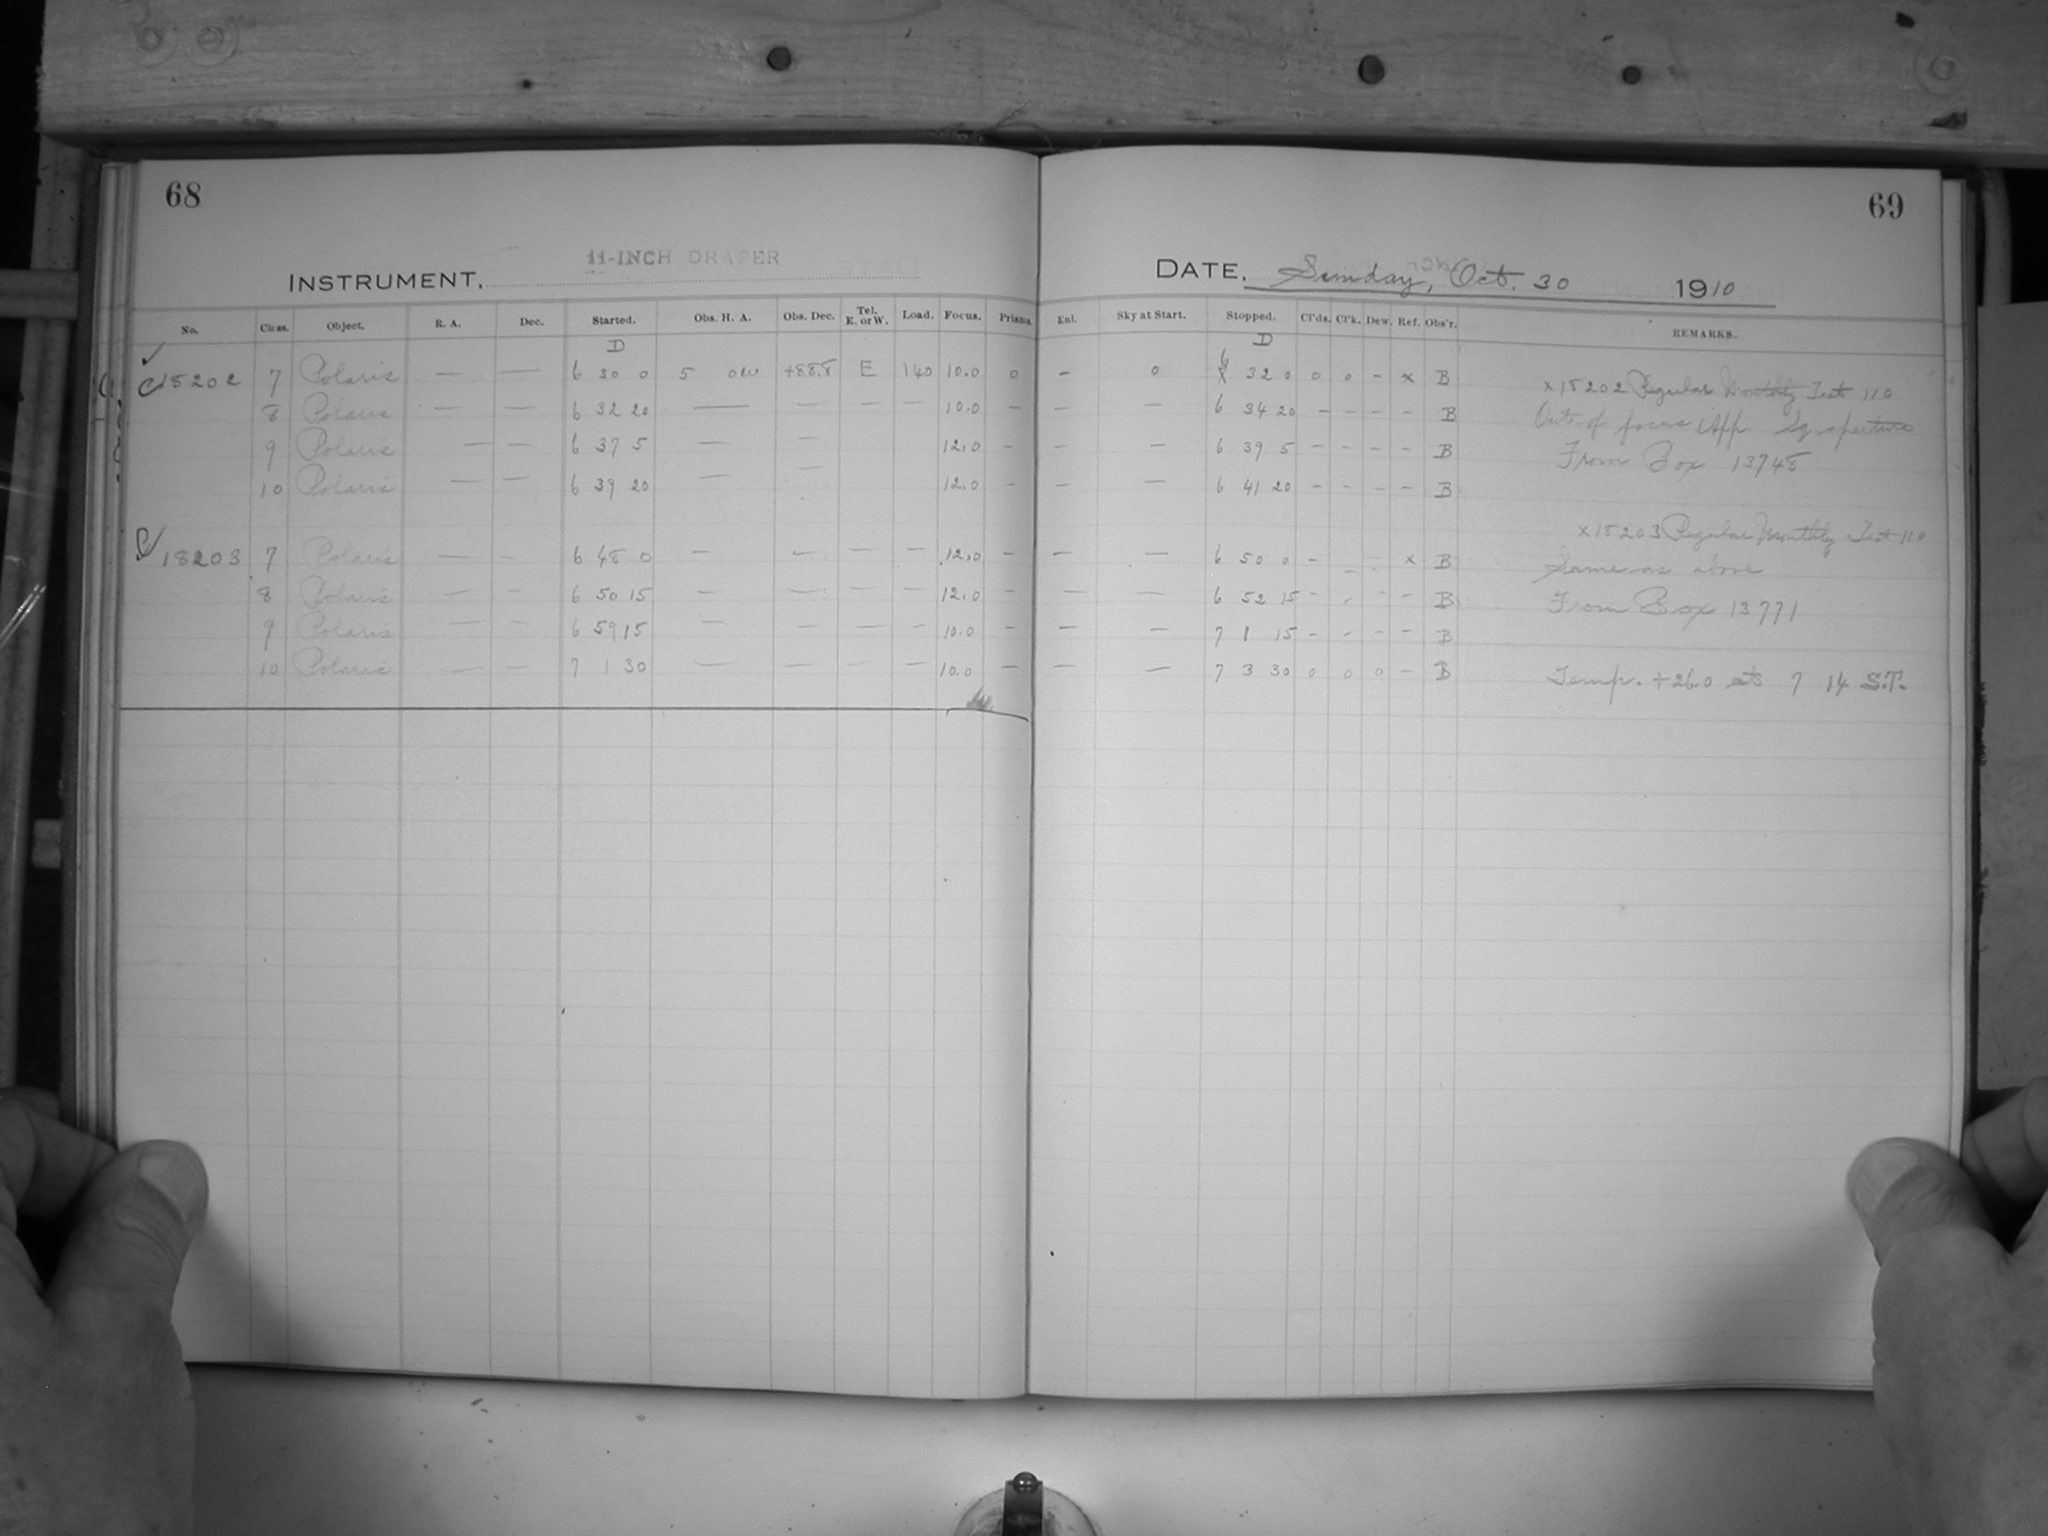 68
69
INSTRUMENT, 11-INCH DRAPER
DATE, Sunday, Oct. 30 1910
No. Class. Object. R. A. Dec. Started. Obs. H. A. Obs. Dec. Tel. E. or W. Load. Focus. Prisms. Enl. Sky at Start. Stopped. Cl'ds. Cl'k. Dew. Ref. Obs'r. REMARKS.
D D
C 18202 7 Polaris — — 6 30 0 5 0W +88.8 E 140 10.0 0 - 0 6 32 0 0 0 - x B x18202 Regular Monthly Test 110
8 Polaris — — 6 32 20 — — — — 10.0 - — — 6 34 20 - - - - B Out of focus App. Sq. aperture
9 Polaris — — 6 37 5 — — 12.0 - — — 6 39 5 - - - - B From Box 13748
10 Polaris — — 6 39 20 — — 12.0 - — — 6 41 20 - - - - B
x18203 Regular Monthly Test 110
18203 7 Polaris — - 6 48 0 - — — - 12.0 - — — 6 50 0 - - - x B Same as above
8 Polaris — - 6 50 15 — — — — 12.0 - — — 6 52 15 - - - - B From Box 13771
9 Polaris — - 6 59 15 — — — - 10.0 - — — 7 1 15 - - - - B
10 Polaris — - 7 1 30 — — — - 10.0 - — — 7 3 30 0 0 0 - B Temp. +26.0 at 7 14 S.T.